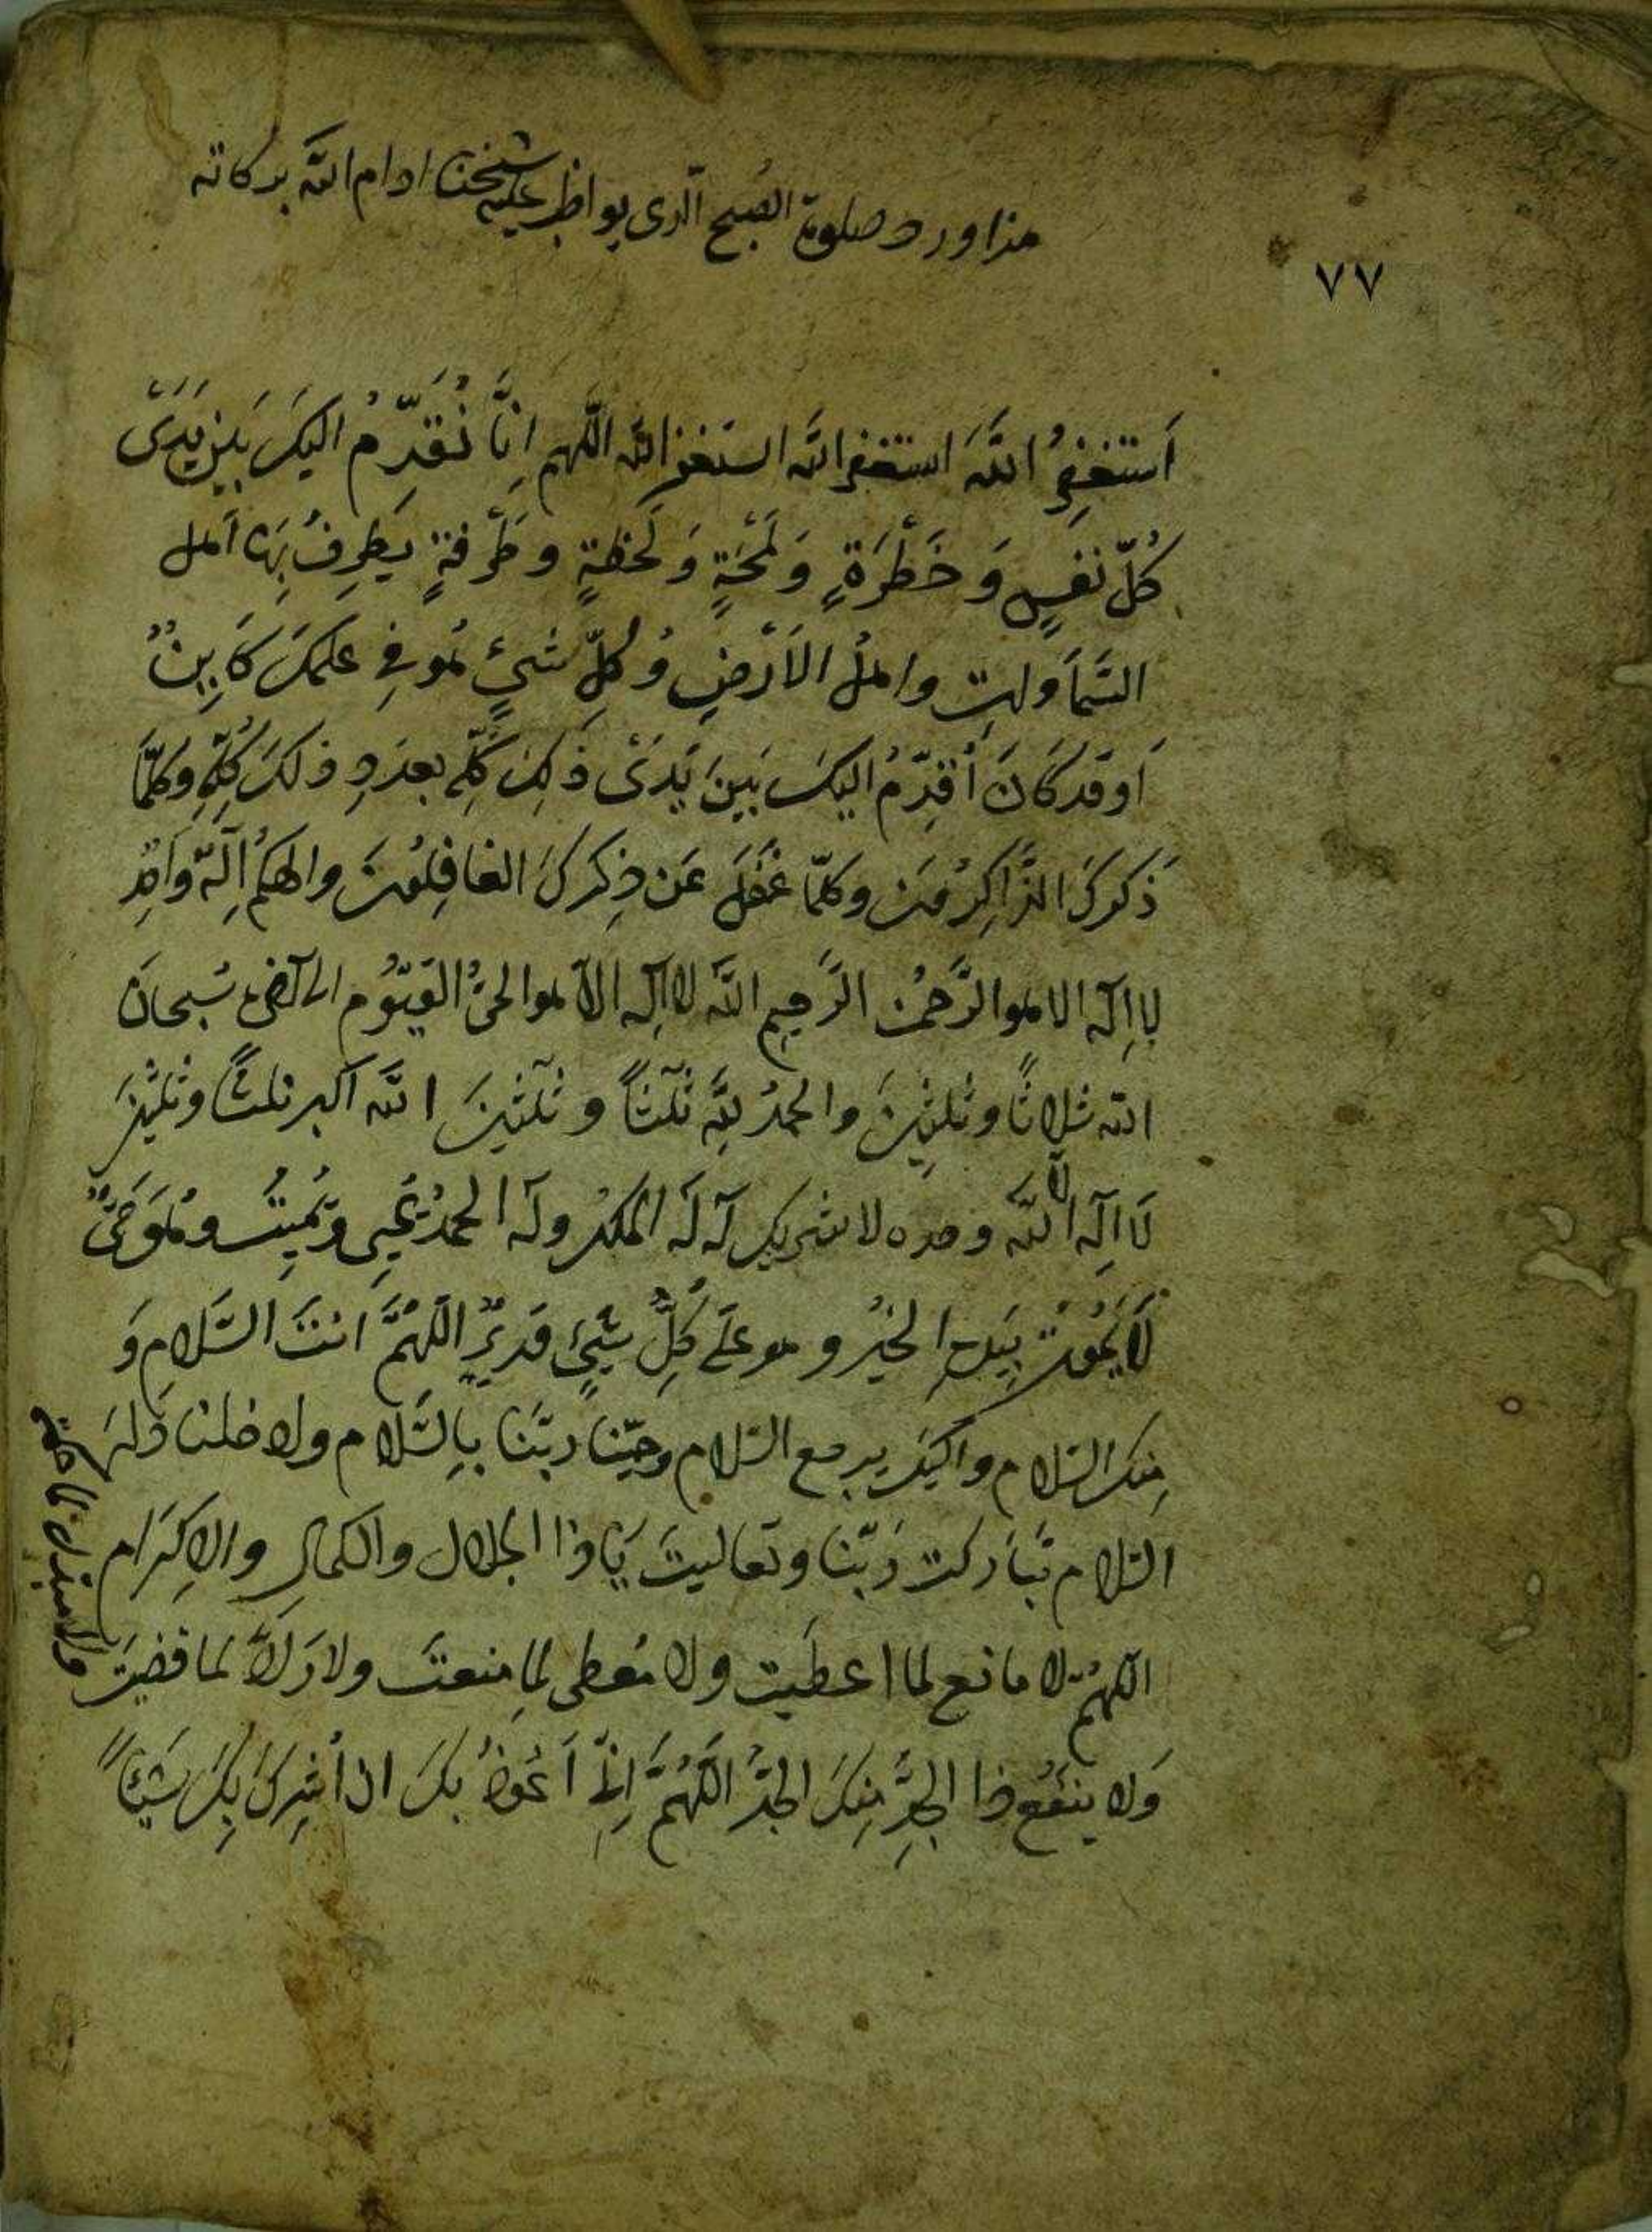 هذا ورد صلوة الصبح الذى يواظب عليه شيخنا ادام الله بركاته
٧٧
اَستغفِرُ اللهَ استغفر الله استغفر الله اللهم اِنَّا نُقَدِّمُ اليكَ بَيْنَ يَدَىْ
كُلِّ نفسٍ وَ خَطْرَةٍ وَ لَمْحَةٍ وَ لحظةٍ و طَرْفةٍ يَطرِفُ بِهَا اَهل
السَّمَاوٰتِ واهلُ الاَرْضِ وُ كلِّ شيءٍ هُو فِى علمكَ كَايِنٌ
اَو قد كَانَ اُقدِّمُ اليكَ بَينَ يَدَىْ ذٰلِكَ كُلِّه بعدَدِ ذلكَ كُلِّهِ وَ كلّمَا
ذَكَركَ الذَّاكِرُونَ وكلّما غَفَلَ عَن ذِكركَ الغافِلُونَ والهكم اِلٰهٌ وَاحِدٌ
لا اِلٰه الا هو الرَّحمٰن الرَّحِيم اللهُ لا اِلٰه الّا هو الحىُّ القيّوُم الى آخره سُبحانَ
الله ثلاثًا وثلثينَ والحمدُ لِلّٰهِ ثلٰثًا و ثلٰثينَ اللهُ اكبر ثلثًا وثلثينَ
لَا اِلٰه الا اللّٰه وحده لا شريك لَه لَه الملكُ وله الحمدُ يُحيِى ويُمِيتُ وهُوَ حَىٌّ
لَا يَمُوتُ بِيَدِهِ الخيرُ وهو عَلَى كُلِّ شيءٍ قديرٌ اللّهُمَّ انتَ السَّلام وَ
مِنكَ السّلام واليكَ يرجع السّلام وحيّنا ربَّنَا بِالسَّلام وادخلنا دَارَ
السّلام تَبَارَكتَ رَبّنا وتعاليتَ يَا ذا الجلال والكمال والاِكرَام
اللهُمّ لا مانع لما اعطَيت ولا مُعطِى لِما منعتَ ولا رَادَّ لما قضيتَ
ولا مبدل لما حكمت
وَلا ينفَعُ ذا الجدِّ مِنكَ الجدُّ اللّهُمَّ اِنِّى اَعُوذُ بكَ ان اُشرِكَ بِكَ شَيئًا